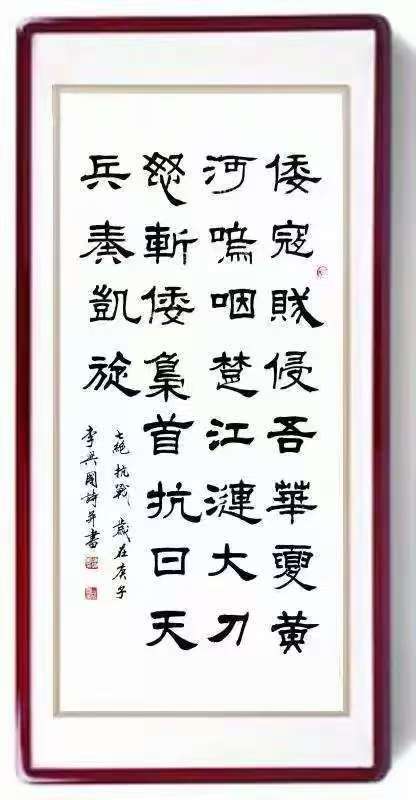 倭寇賊侵吾華夏黃
河嗚咽楚江漣大刀
怒斬倭梟首抗日天
兵奏凱旋
七絕抗戰 歲在庚子
李興國詩并書